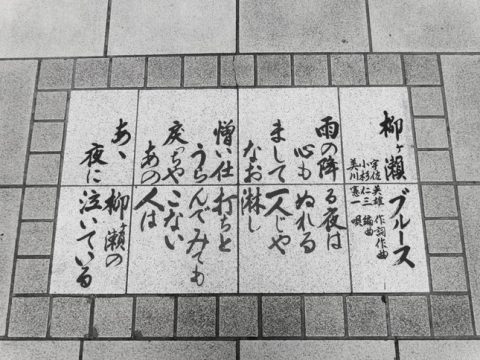 柳ヶ瀬ブルース
宇佐英雄 作詞作曲
小杉仁三 編曲
美川憲一 唄
雨の降る夜は
心もぬれる
まして一人じゃ
なお淋し
憎い仕打ちと
うらんでみても
戻りゃこない
あの人は
あゝ柳ヶ瀬の
夜に泣いている